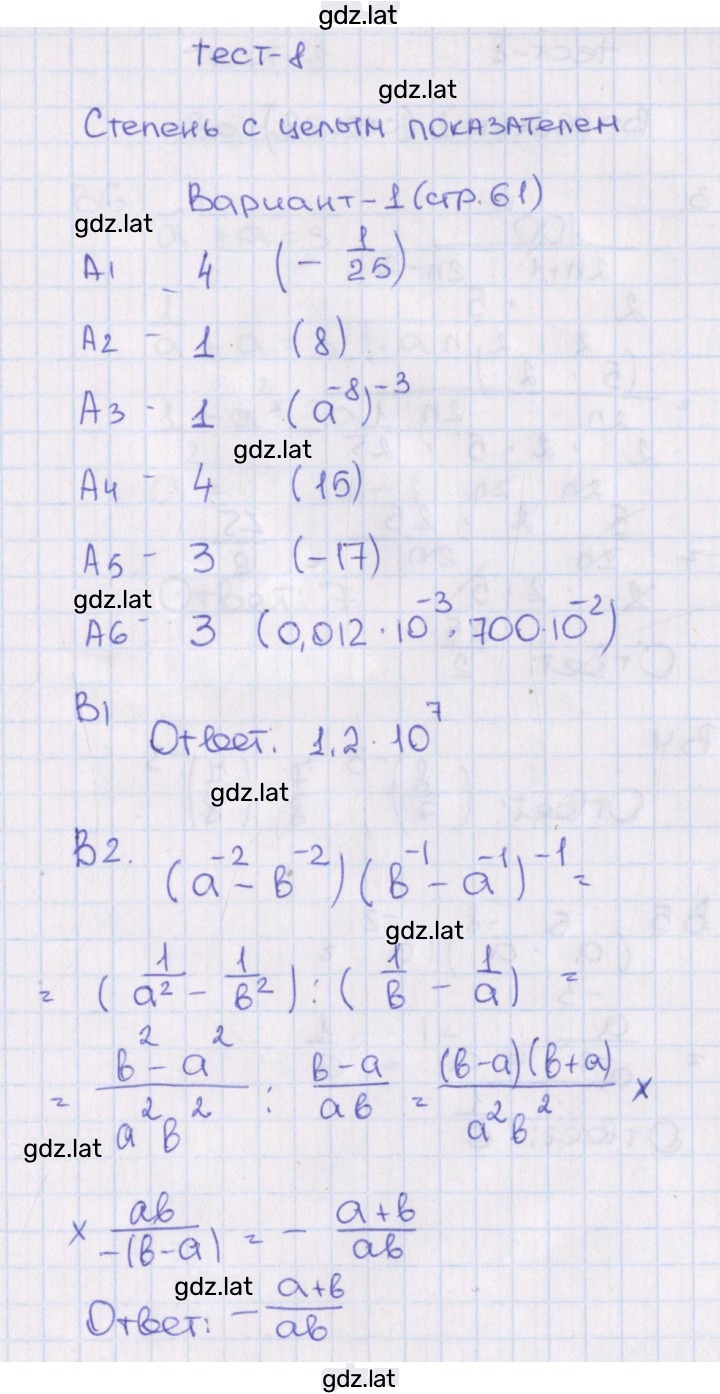 gdz.lat
тест-8
gdz.lat
Степень с целым показателем
Вариант-1 (стр. 61)
gdz.lat
А1 - 4 (-1/25)
А2 - 1 (8)
А3 - 1 (a⁻⁸)⁻³
gdz.lat
А4 - 4 (15)
А5 - 3 (-17)
gdz.lat
А6 - 3 (0,012 · 10⁻³ · 700 · 10⁻²)
В1 Ответ: 1,2 · 10⁷
gdz.lat
В2. (a⁻² - в⁻²)(в⁻¹ - a⁻¹)⁻¹ =
gdz.lat
= (1/a² - 1/в²) : (1/в - 1/a) =
= (в² - a²)/(a²в²) : (в-a)/(aв) = (в-a)(в+a)/(a²в²) ×
gdz.lat
× aв/(-(в-a)) = - (a+в)/(aв)
gdz.lat
Ответ: - (a+в)/(aв)
gdz.lat